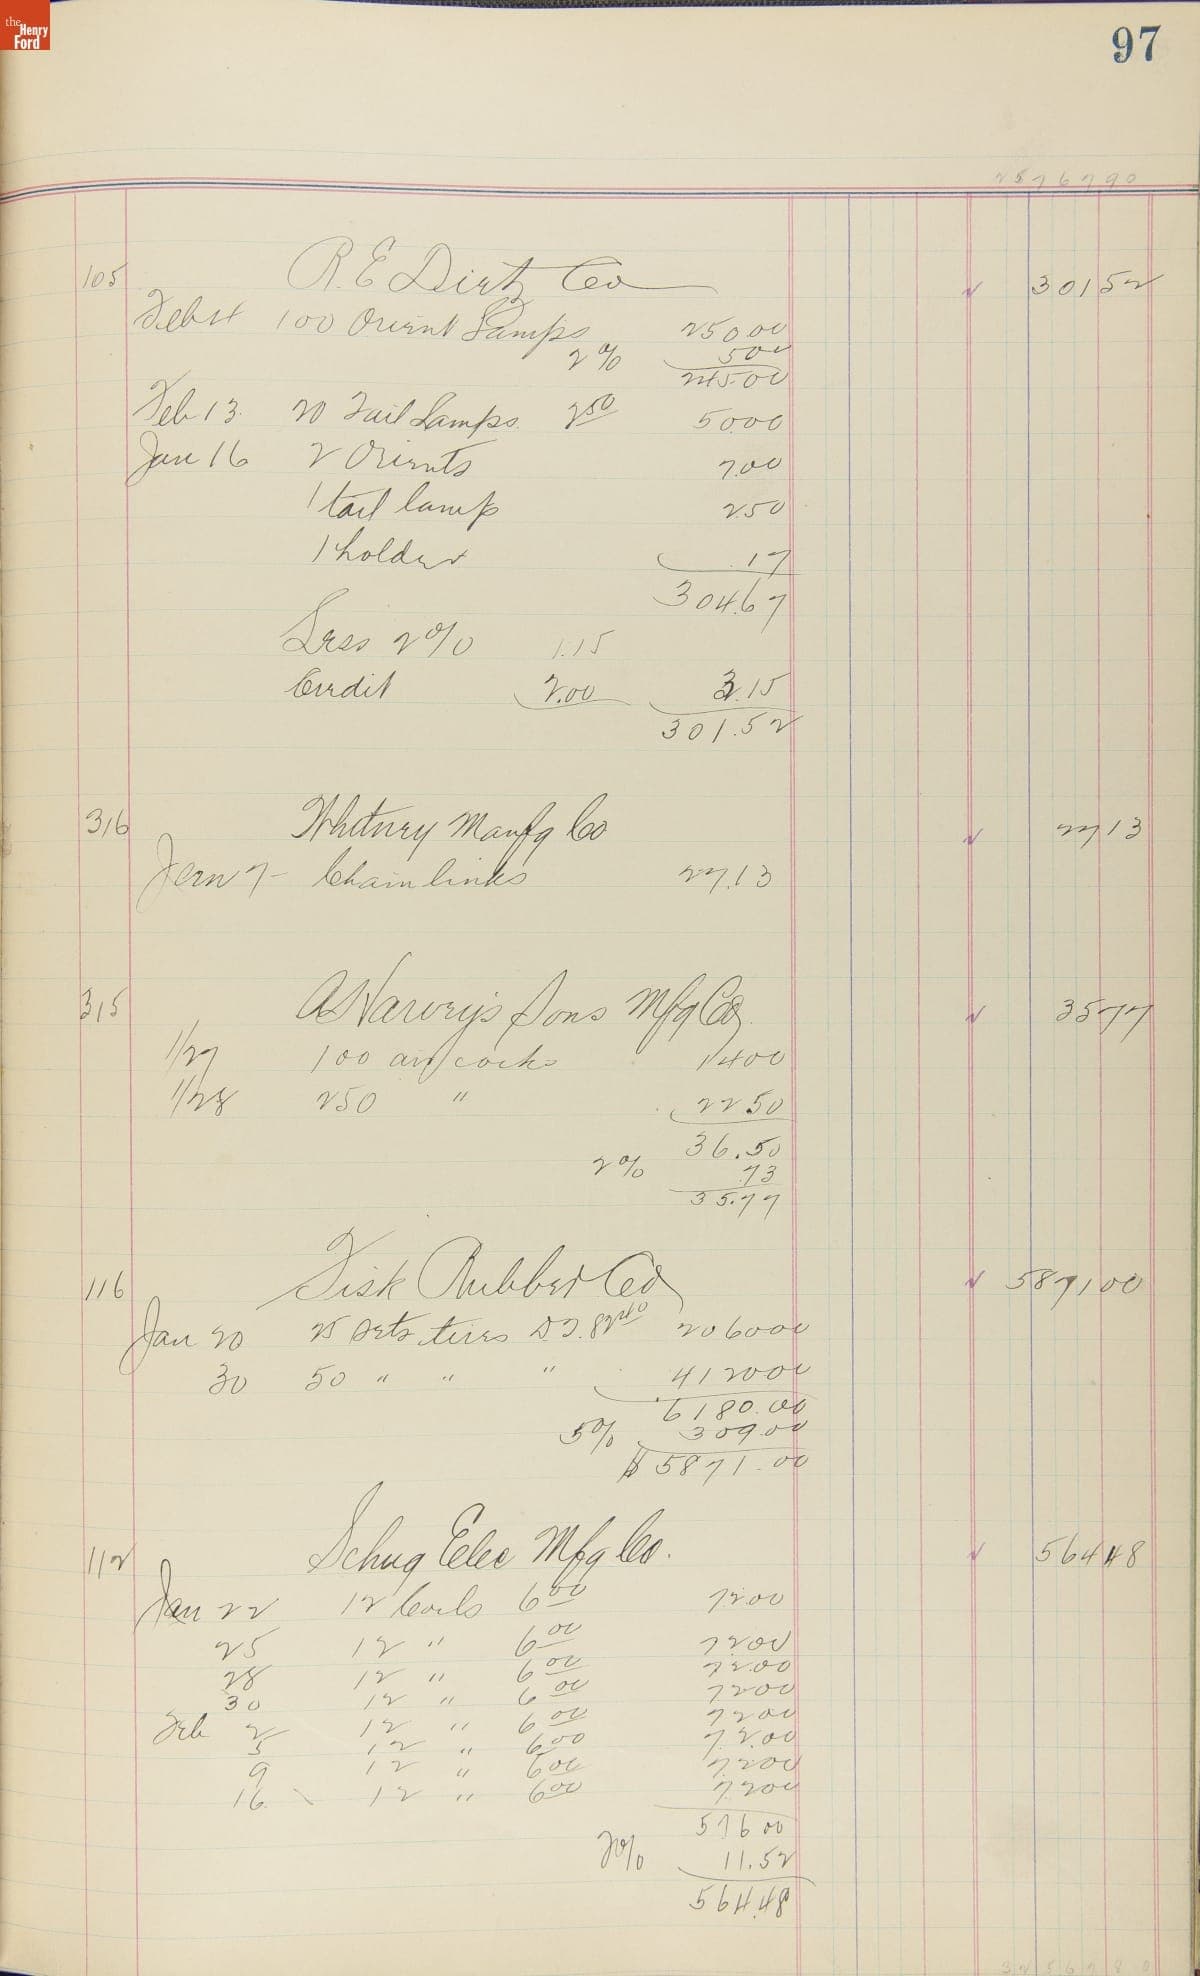 the Henry Ford
97
2576790
105 R. E. Dietz Co ✓ 301 52
Feb 11 100 Orient Lamps 250 00
2% 5 00
245.00
Feb 13 20 Tail Lamps 2 50 50.00
Jan 16 2 Orients 7.00
1 tail lamp 2.50
1 holder .17
304.67
Less 2% 1.15
Credit 2.00 3.15
301.52
316 Whitney Manfg Co ✓ 27 13
Jan 7 Chain links 27.13
315 A Harvey's Sons Mfg Co. ✓ 35 77
1/27 100 air cocks 14 00
1/28 250 " 22 50
36.50
2% .73
35.77
116 Fisk Rubber Co ✓ 5871 00
Jan 20 25 Sets tires D.T. 82 40 2060 00
30 50 " " " 4120 00
6180.00
5% 309.00
$ 5871.00
112 Schug Elec Mfg Co. ✓ 564 48
Jan 22 12 Coils 6 00 72.00
25 12 " 6 00 72 00
28 12 " 6 00 72.00
30 12 " 6 00 72 00
Feb 2 12 " 6 00 72 00
5 12 " 6 00 72.00
9 12 " 6 00 72 00
16 12 " 6 00 72 00
576 00
2% 11.52
564.48